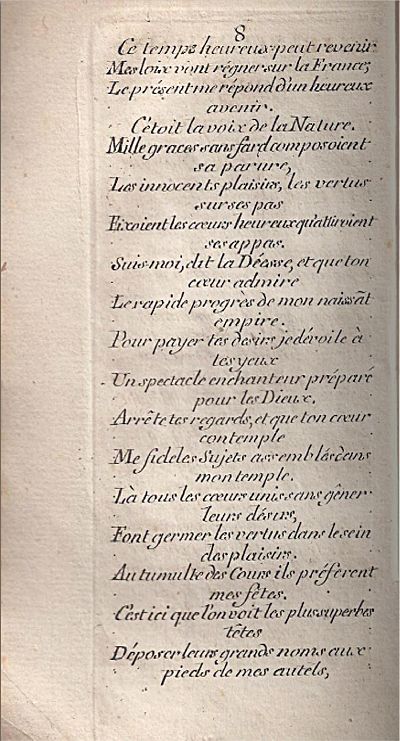 8
Ce temps heureux peut revenir
Mes loix vont régner sur la France,
Le présent me répond d'un heureux
avenir.
C'étoit la voix de la Nature.
Mille graces sans fard composoient
sa parure,
Les innocents plaisirs, les vertus
sur ses pas
Fixoient les cœurs heureux qu'attiroient
ses appas.
Suis-moi, dit la Déesse, et que ton
cœur admire
Le rapide progrès de mon naissãt
empire.
Pour payer tes desirs je dévoile à
tes yeux
Un spectacle enchanteur préparé
pour les Dieux.
Arrête tes regards, et que ton cœur
contemple
Me fideles Sujets assemblés dans
mon temple.
Là tous les cœurs unis sans gêner
leurs désirs,
Font germer les vertus dans le sein
des plaisirs.
Au tumulte des Cours ils préferent
mes fêtes.
C'est ici que l'on voit les plus superbes
têtes
Déposer leurs grands noms aux
pieds de mes autels,